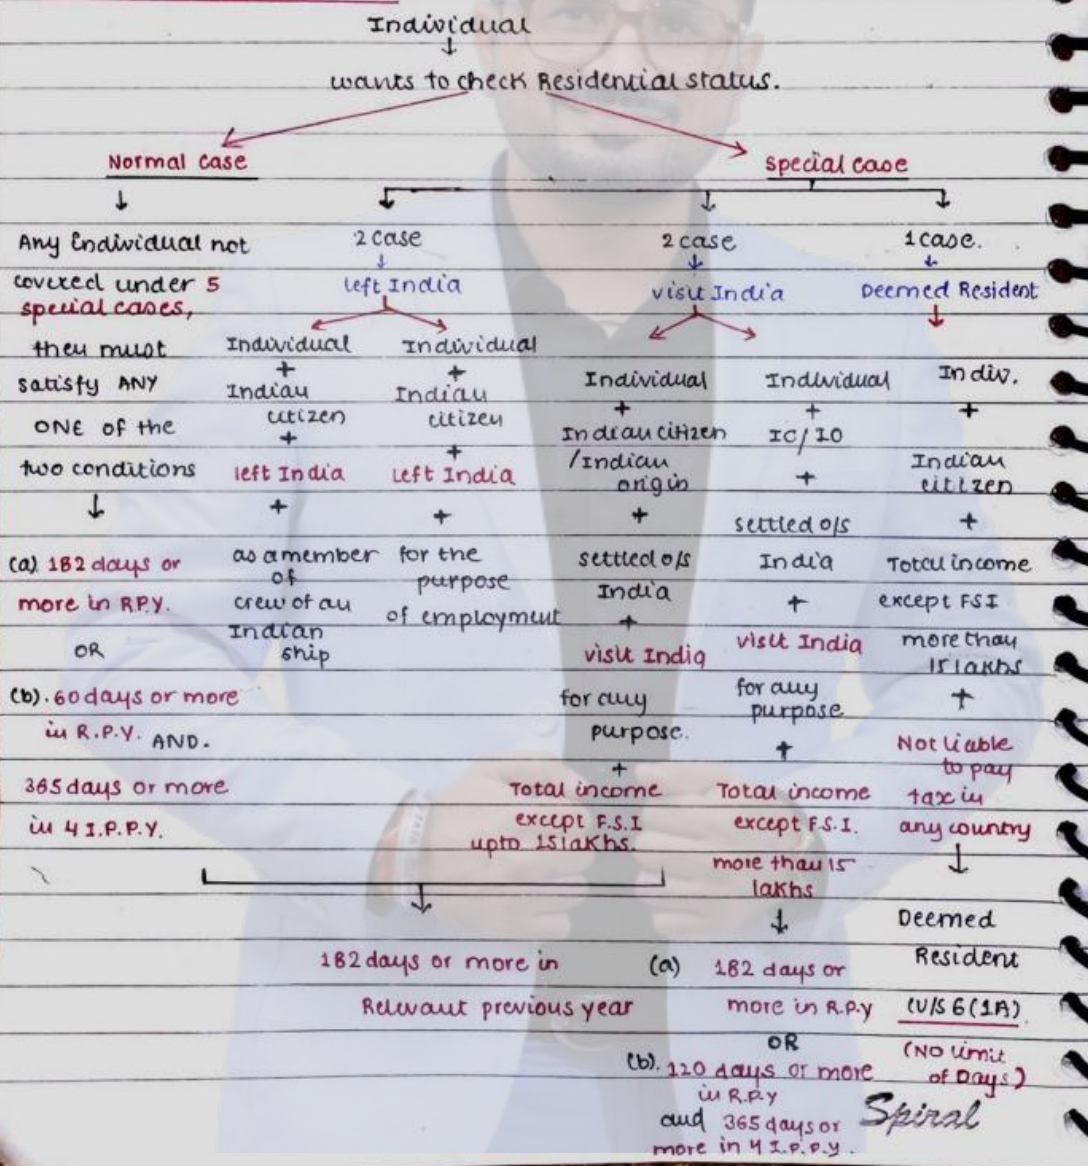 Individual
↓
wants to check Residential status.
Normal case
↓
Any Individual not
covered under 5
special cases,
they must
satisfy ANY
ONE of the
two conditions
↓
(a) 182 days or
more in R.P.Y.
OR
(b). 60 days or more
in R.P.Y. AND.
365 days or more
in 4 I.P.P.Y.
special case
2 case
↓
left India
Individual
+
Indian
citizen
+
left India
+
as a member
of
crew of an
Indian
ship
Individual
+
Indian
citizen
+
Left India
+
for the
purpose
of employment
2 case
↓
visit India
Individual
+
Indian citizen
/Indian
origin
+
settled o/s
India
+
visit India
for any
purpose.
+
Total income
except F.S.I
upto 15 lakhs.
↓
182 days or more in
Relevant previous year
Individual
+
IC/IO
+
settled o/s
India
+
visit India
for any
purpose
+
Total income
except F.S.I.
more than 15
lakhs
↓
(a) 182 days or
more in R.P.y
OR
(b). 120 days or more
in R.P.y
and 365 days or
more in 4 I.P.P.y.
1 case.
↓
Deemed Resident
↓
Indiv.
+
Indian
citizen
+
Total income
except FSI
more than
15 lakhs
+
Not liable
to pay
tax in
any country
↓
Deemed
Resident
(U/S 6(1A)
(NO limit
of Days)
Spiral